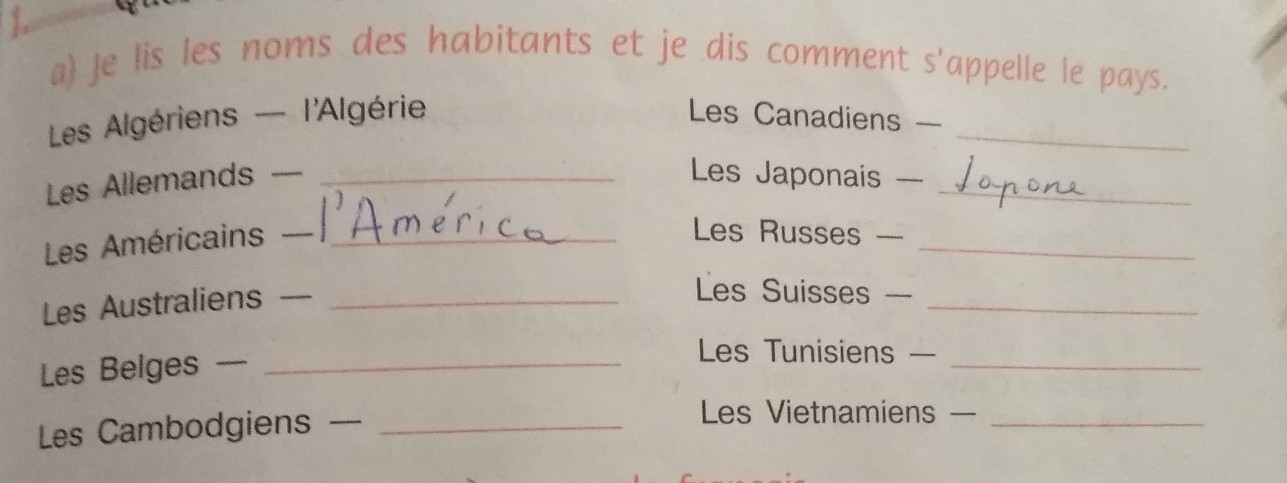 1.
a) je lis les noms des habitants et je dis comment s'appelle le pays.
Les Algériens — l'Algérie
Les Allemands —
Les Américains — l'América
Les Australiens —
Les Belges —
Les Cambodgiens —
Les Canadiens —
Les Japonais — Japone
Les Russes —
Les Suisses —
Les Tunisiens —
Les Vietnamiens —